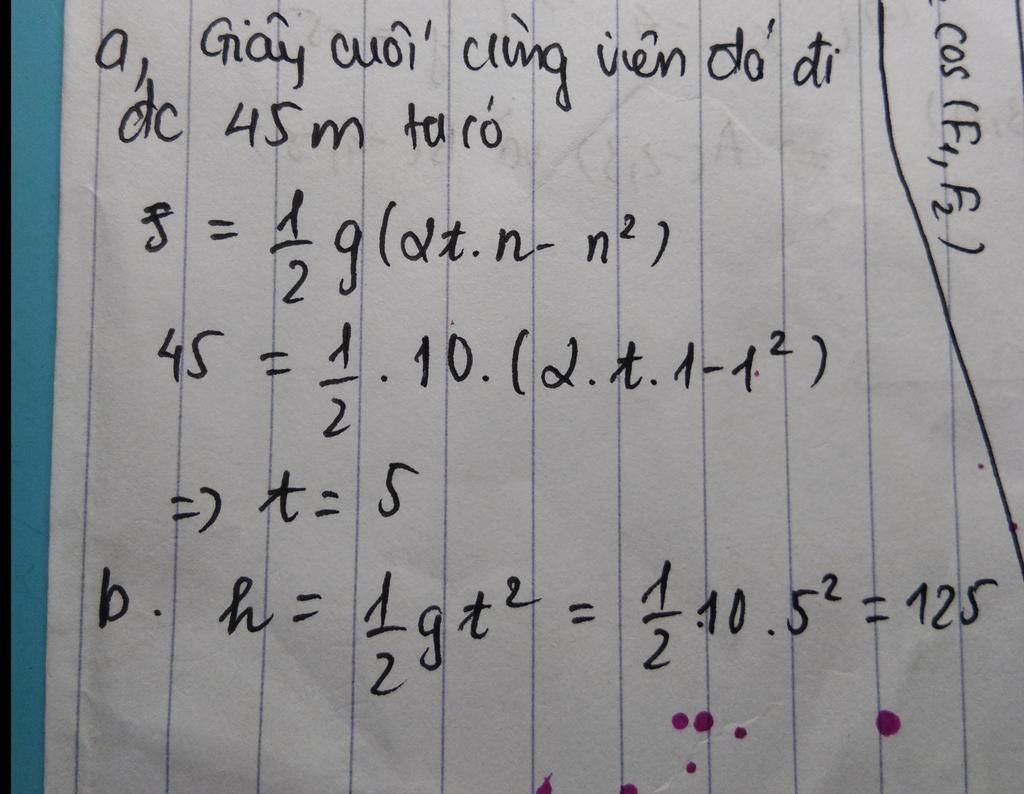 a, Giây cuối cùng viên đá đi
đc 45m ta có
s = 1/2 g(2t.n - n²)
45 = 1/2 . 10. (2.t.1-1²)
=> t = 5
b. h = 1/2 g t² = 1/2 .10 .5² = 125
cos (F₁, F₂)